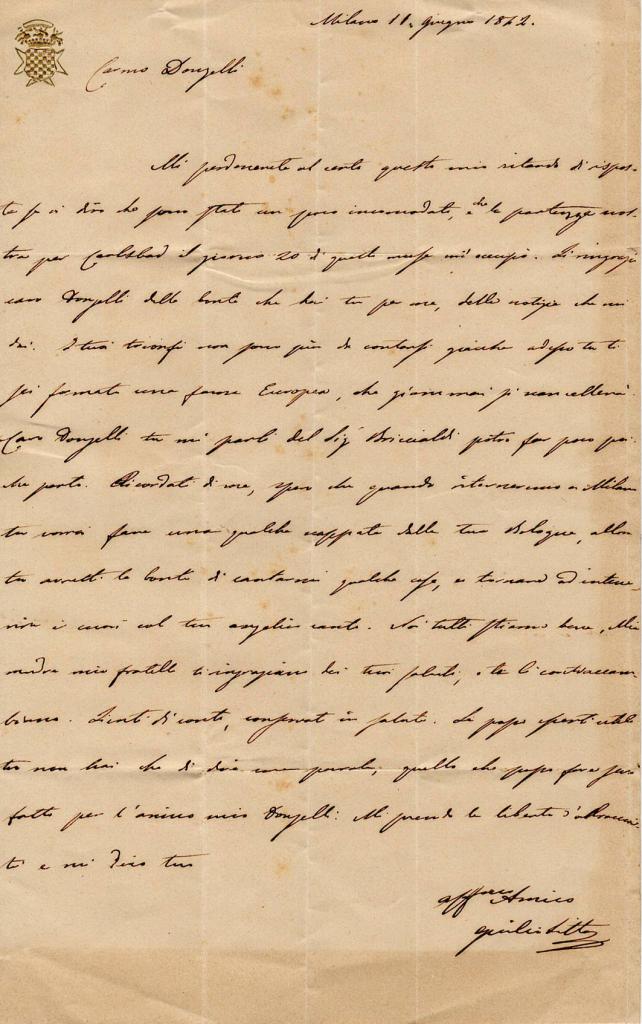 Milano 11. giugno 1842.
Carmo Donzelli
Mi perdonerete al certo questo mio ritardo di rispos-
ta se vi dirò che sono stato un poco incomodato, e che la partenza nos-
tra per Carlsbad il giorno 20 di questo mese mi occupò. Ti ringrazio
caro Donzelli della bontà che hai tu per me, delle notizie che mi
dai. I tuoi trionfi non sono più da contarsi giacche adesso tu ti
sei formato una fama Europea, che giammai si cancellerà.
Caro Donzelli tu mi parli del Sig. Briccialdi potrò far poco poi-
che parto. Ricordati di me, spero che quando ritorneremo a Milano
tu vorrai fare una qualche scappata dalla tua Bologna, allora
tu avresti la bontà di cantarmi qualche cosa, e tornare ad intene-
rire i cuori col tuo angelico canto. Noi tutti stiamo bene, Mia
madre mio fratello ti ringraziano dei tuoi saluti, e te li contraccam-
biano. conservati in salute. Se posso esserti utile
tu non hai che di dire una parola, quello che posso fare sarà
fatto per l'amico mio Donzelli. Mi prendo la libertà d'abbracciar-
ti e mi dico tuo
affmo Amico
Giulio Litta